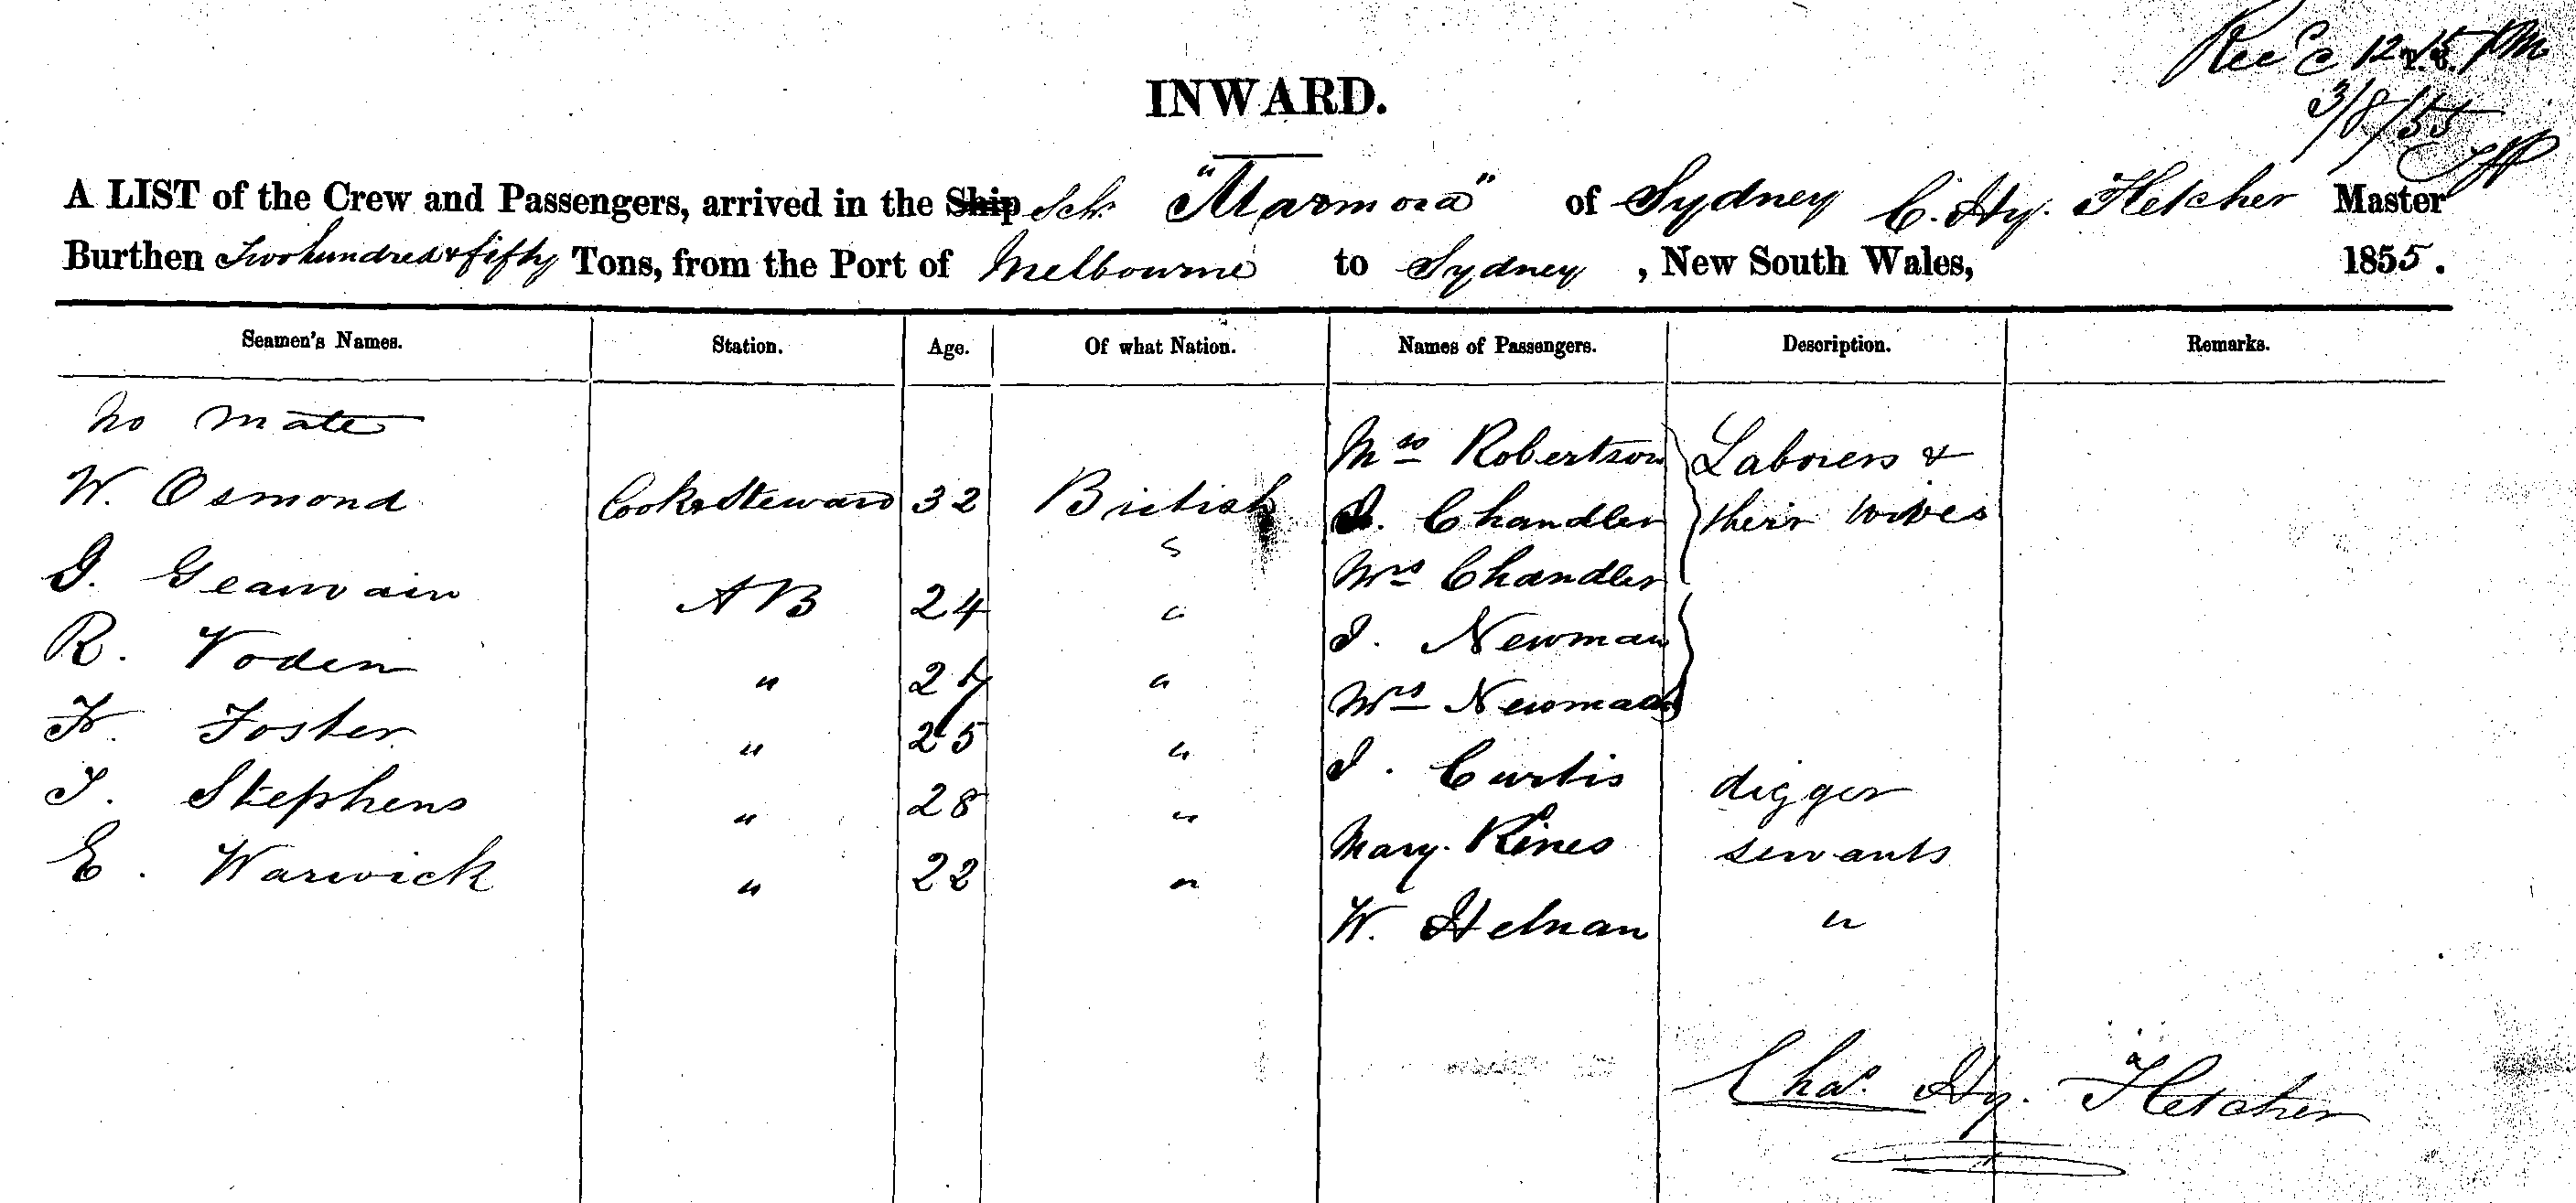 Rec'd 12.15 PM
3/8/55
INWARD.
A LIST of the Crew and Passengers, arrived in the Ship Schr "Marmora" of Sydney C. Hy. Fletcher Master
Burthen Two hundred & fifty Tons, from the Port of Melbourne to Sydney, New South Wales, 1855.
Seamen's Names. Station. Age. Of what Nation. Names of Passengers. Description. Remarks.
No Mate
Mrs Robertson Laborers &
W. Osmond Cook & Steward 32 British J. Chandler their wives
Mrs Chandler
J. A B 24 " J. Newman
R. Voden " " Mrs Newman
Fr. Foster " 25 " J. Curtis digger
J. Stephens " 28 " Mary Rines servants
E. Warwick " 22 " W. Helnan "
Chas. Hy. Fletcher